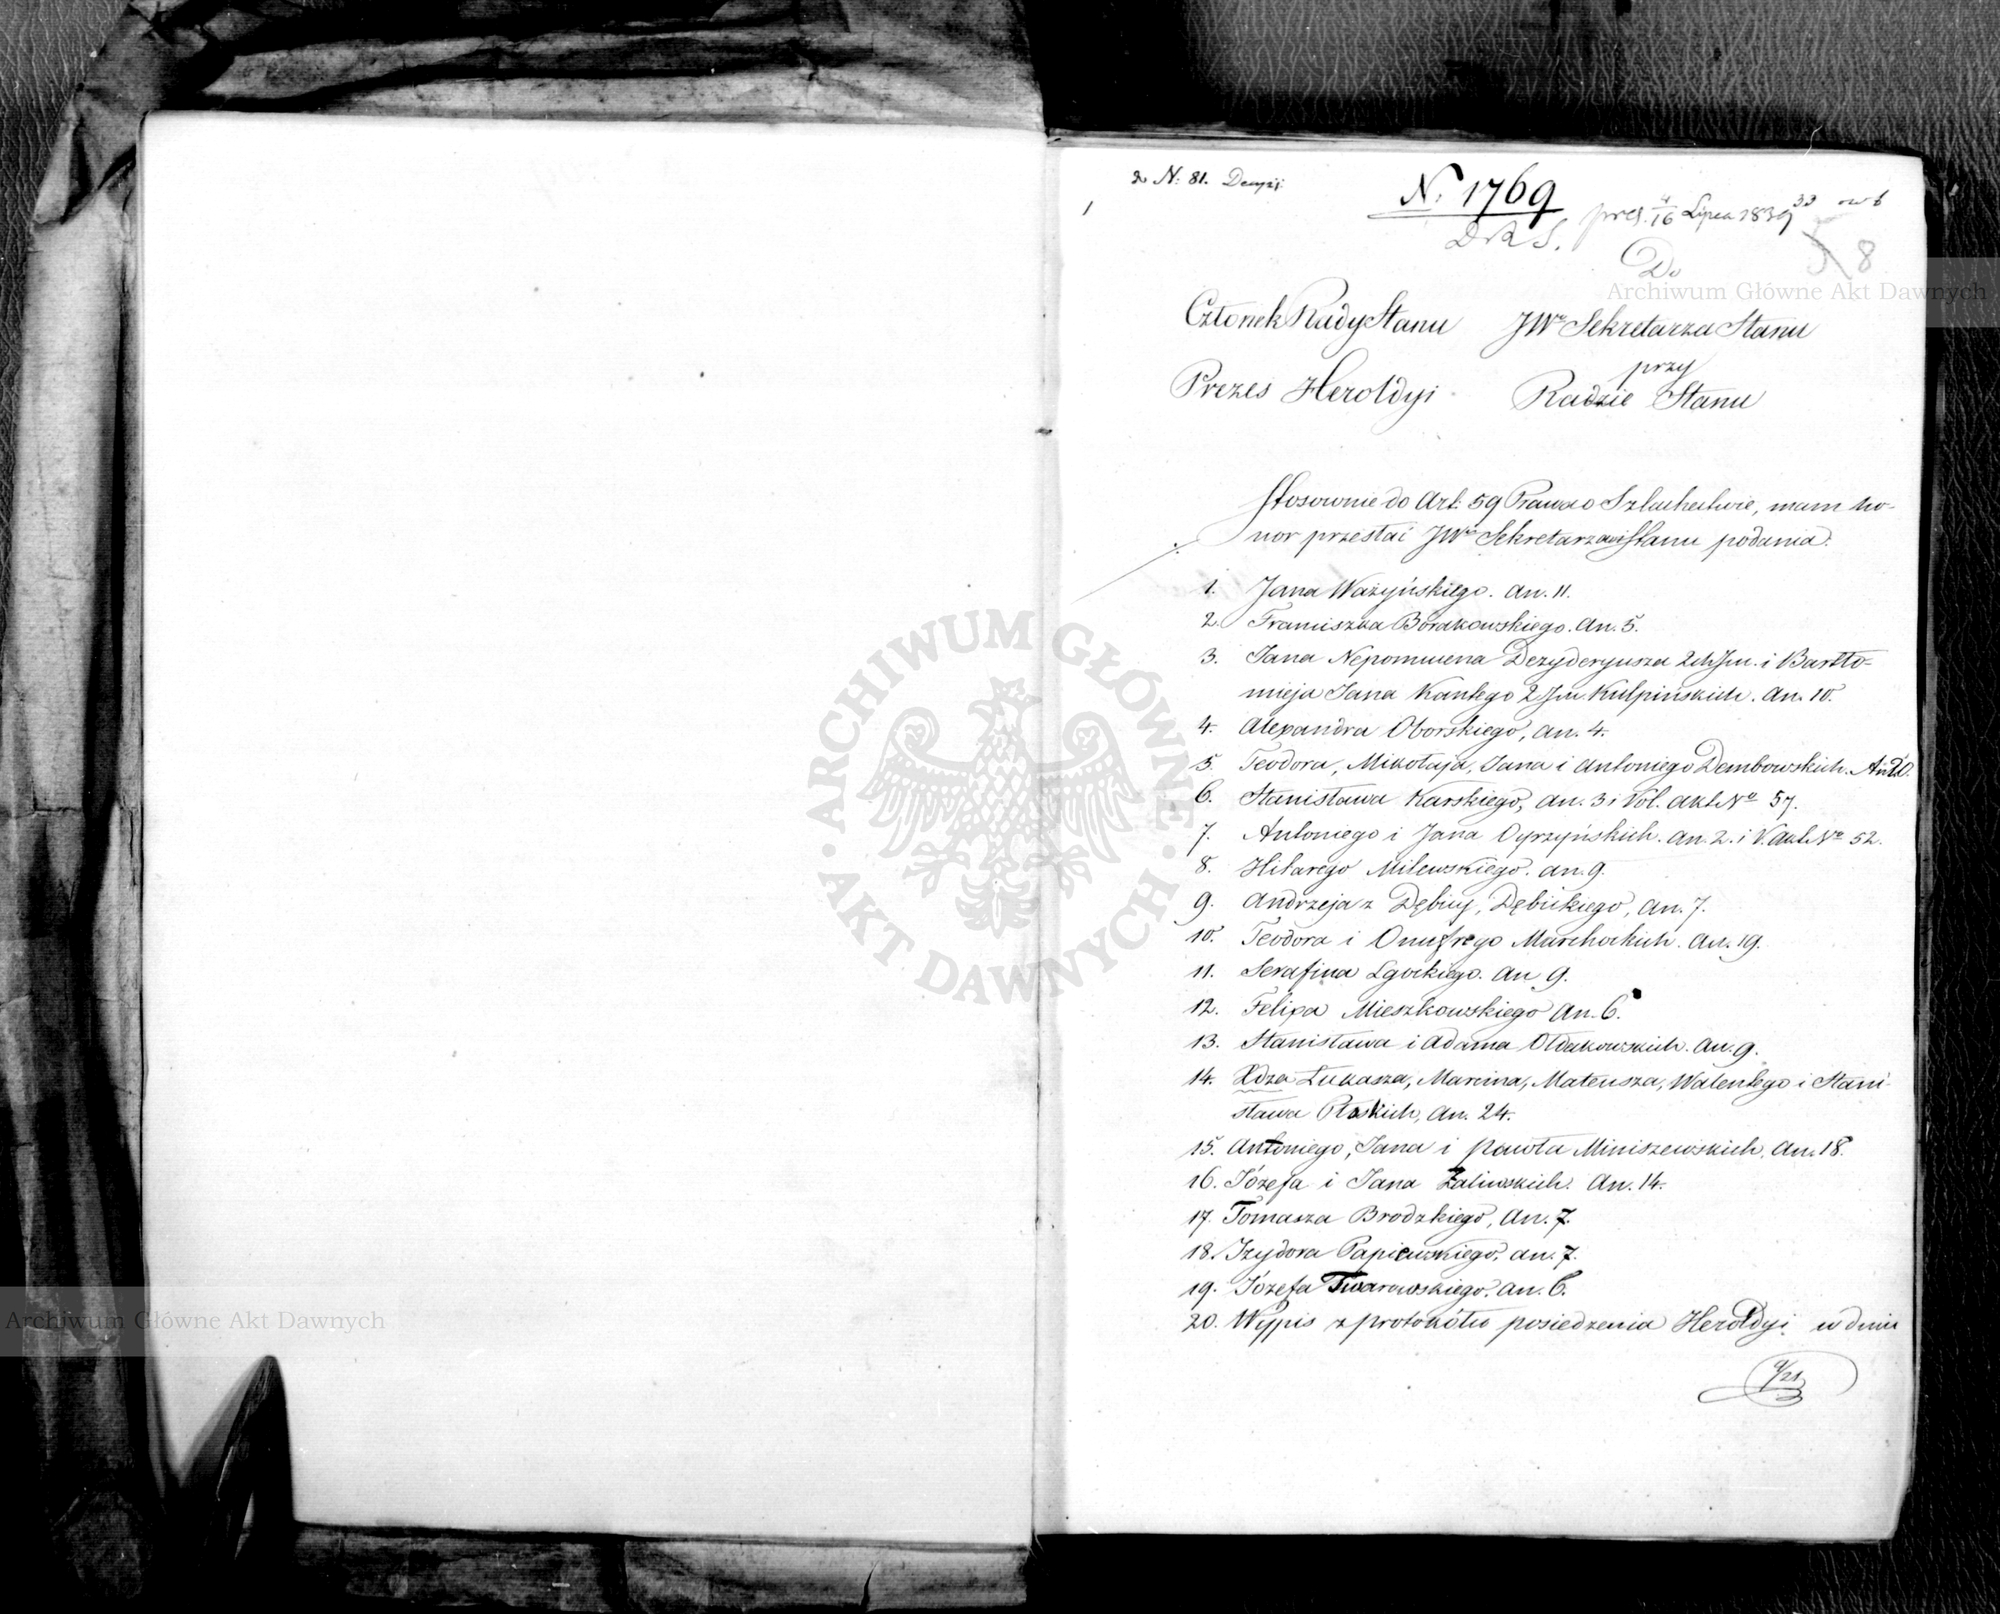 N: 81.
1
N. 1769
D R S.
pres. 4/16 Lipca 1839
8
Do
Członek Rady Stanu
JWo Sekretarza Stanu
przy
Prezes Heroldyi
Radzie Stanu
Stosownie do Art: 59 Prawa o Szlachectwie, mam ho-
nor przesłać JWu Sekretarzowi Stanu podania:
1. Jana Ważyńskiego. An. 11.
2. Franciszka Borakowskiego. An. 5.
3. Jana Nepomucena Dezyderyusza 2ch Jm. i Bartło-
mieja Jana Kantego 2 Jm. Kulpińskich. An. 10.
4. Alexandra Oborskiego, An. 4.
5. Teodora, Mikołaja, Jana i Antoniego Dembowskich.
6. Stanisława Karskiego, An. 3 i Vol. akt No 57.
7. Antoniego i Jana Oyrzyńskich. An. 2. i V. Akt No 52.
8. Hilarego Milewskiego. An. 9.
9. Andrzeja z Dębicy, Dębickiego, An. 7.
10. Teodora i Onufrego Marchockich. An. 19.
11. Serafina Lgockiego. An 9.
12. Felixa Mieszkowskiego An. 6.
13. Stanisława i Adama Ołdakowskich. An. 9.
14. Xdza Łukasza, Marcina, Mateusza, Walentego i Stani-
sława Płoskich, An. 24.
15. Antoniego, Jana i Pawła Miniszewskich. An. 18.
16. Józefa i Jana Zaliwskich. An. 14.
17. Tomasza Brodzkiego, An. 7.
18. Izydora Papiewskiego, An. 7.
19. Józefa Twarowskiego. An. 6.
20. Wypis z protokółu posiedzenia Heroldyi w dniu
9/21
ARCHIWUM GŁÓWNE AKT DAWNYCH
Archiwum Główne Akt Dawnych
Archiwum Główne Akt Dawnych